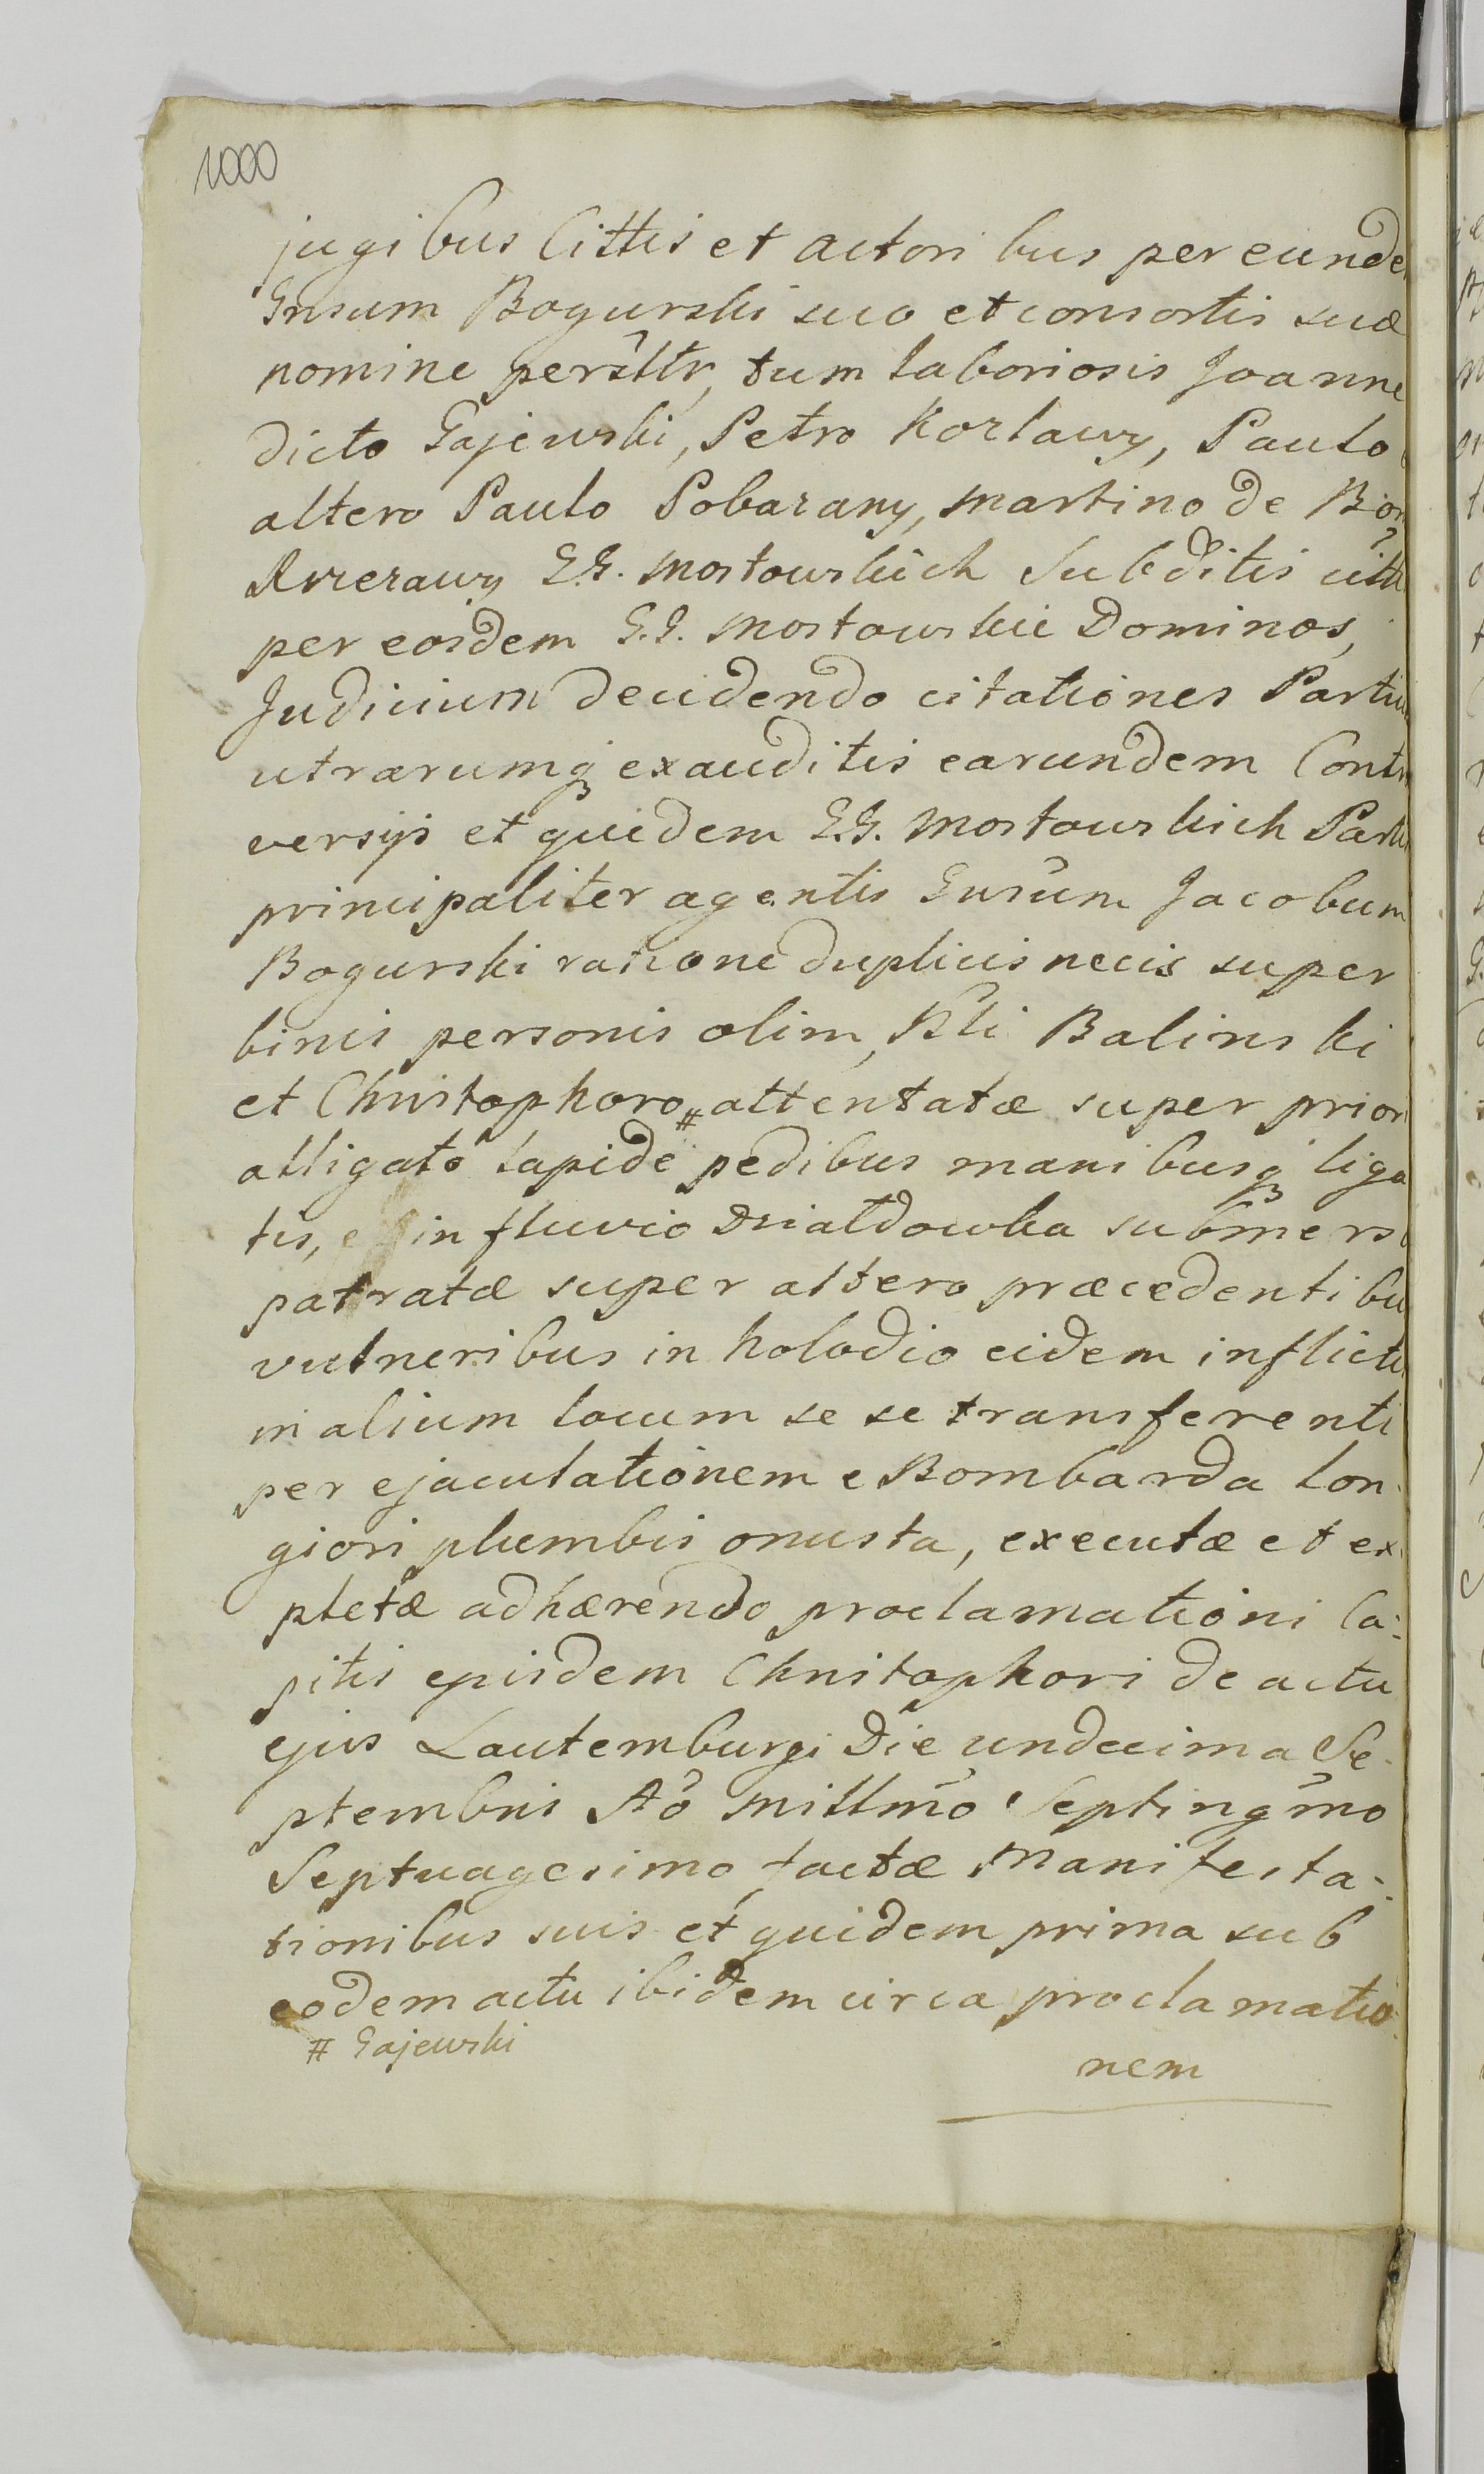 1000
jugibus Cittis et actoribus per eunde
Gnsum Bogurski suo et consortis suæ
nomine persltr, tum laboriosis Joanne
dicto Gajewski, Petro Kozlawy, Paulo
altero Paulo Pobarany, Martino de
G.G. Mostowskich Subditis citt
per eosdem G.G. Mostowskie Dominos,
Judicium decidendo citationes Partiu
utrarumq exauditis earundem Contr
versijs et quidem G.G. Mostowskich Partis
principaliter agentis Gnsum Jacobum
Bogurski ratione duplicis necis super
binis personis olim, Nli Balinski
et Christophoro # attentatæ super prior
alligato lapide pedibus manibusq liga
tis, in fluvio Dzialdowka submers
patratæ super altero præcedentibu
vulneribus in holodio eidem inflicti
in alium locum se se transferenti
per ejaculationem e Bombarda lon-
giori plumbis onusta, executæ et ex
pletæ adhærendo proclamationi Ca-
pitis ejusdem Christophori de actu
ejus Lautemburgi Die undecima Se-
ptembris Aō Millmō Septingmō
Septuagesimo, factæ Manifesta-
tionibus suis et quidem prima sub
eodem actu ibidem circa proclamatio
# Gajewski
nem